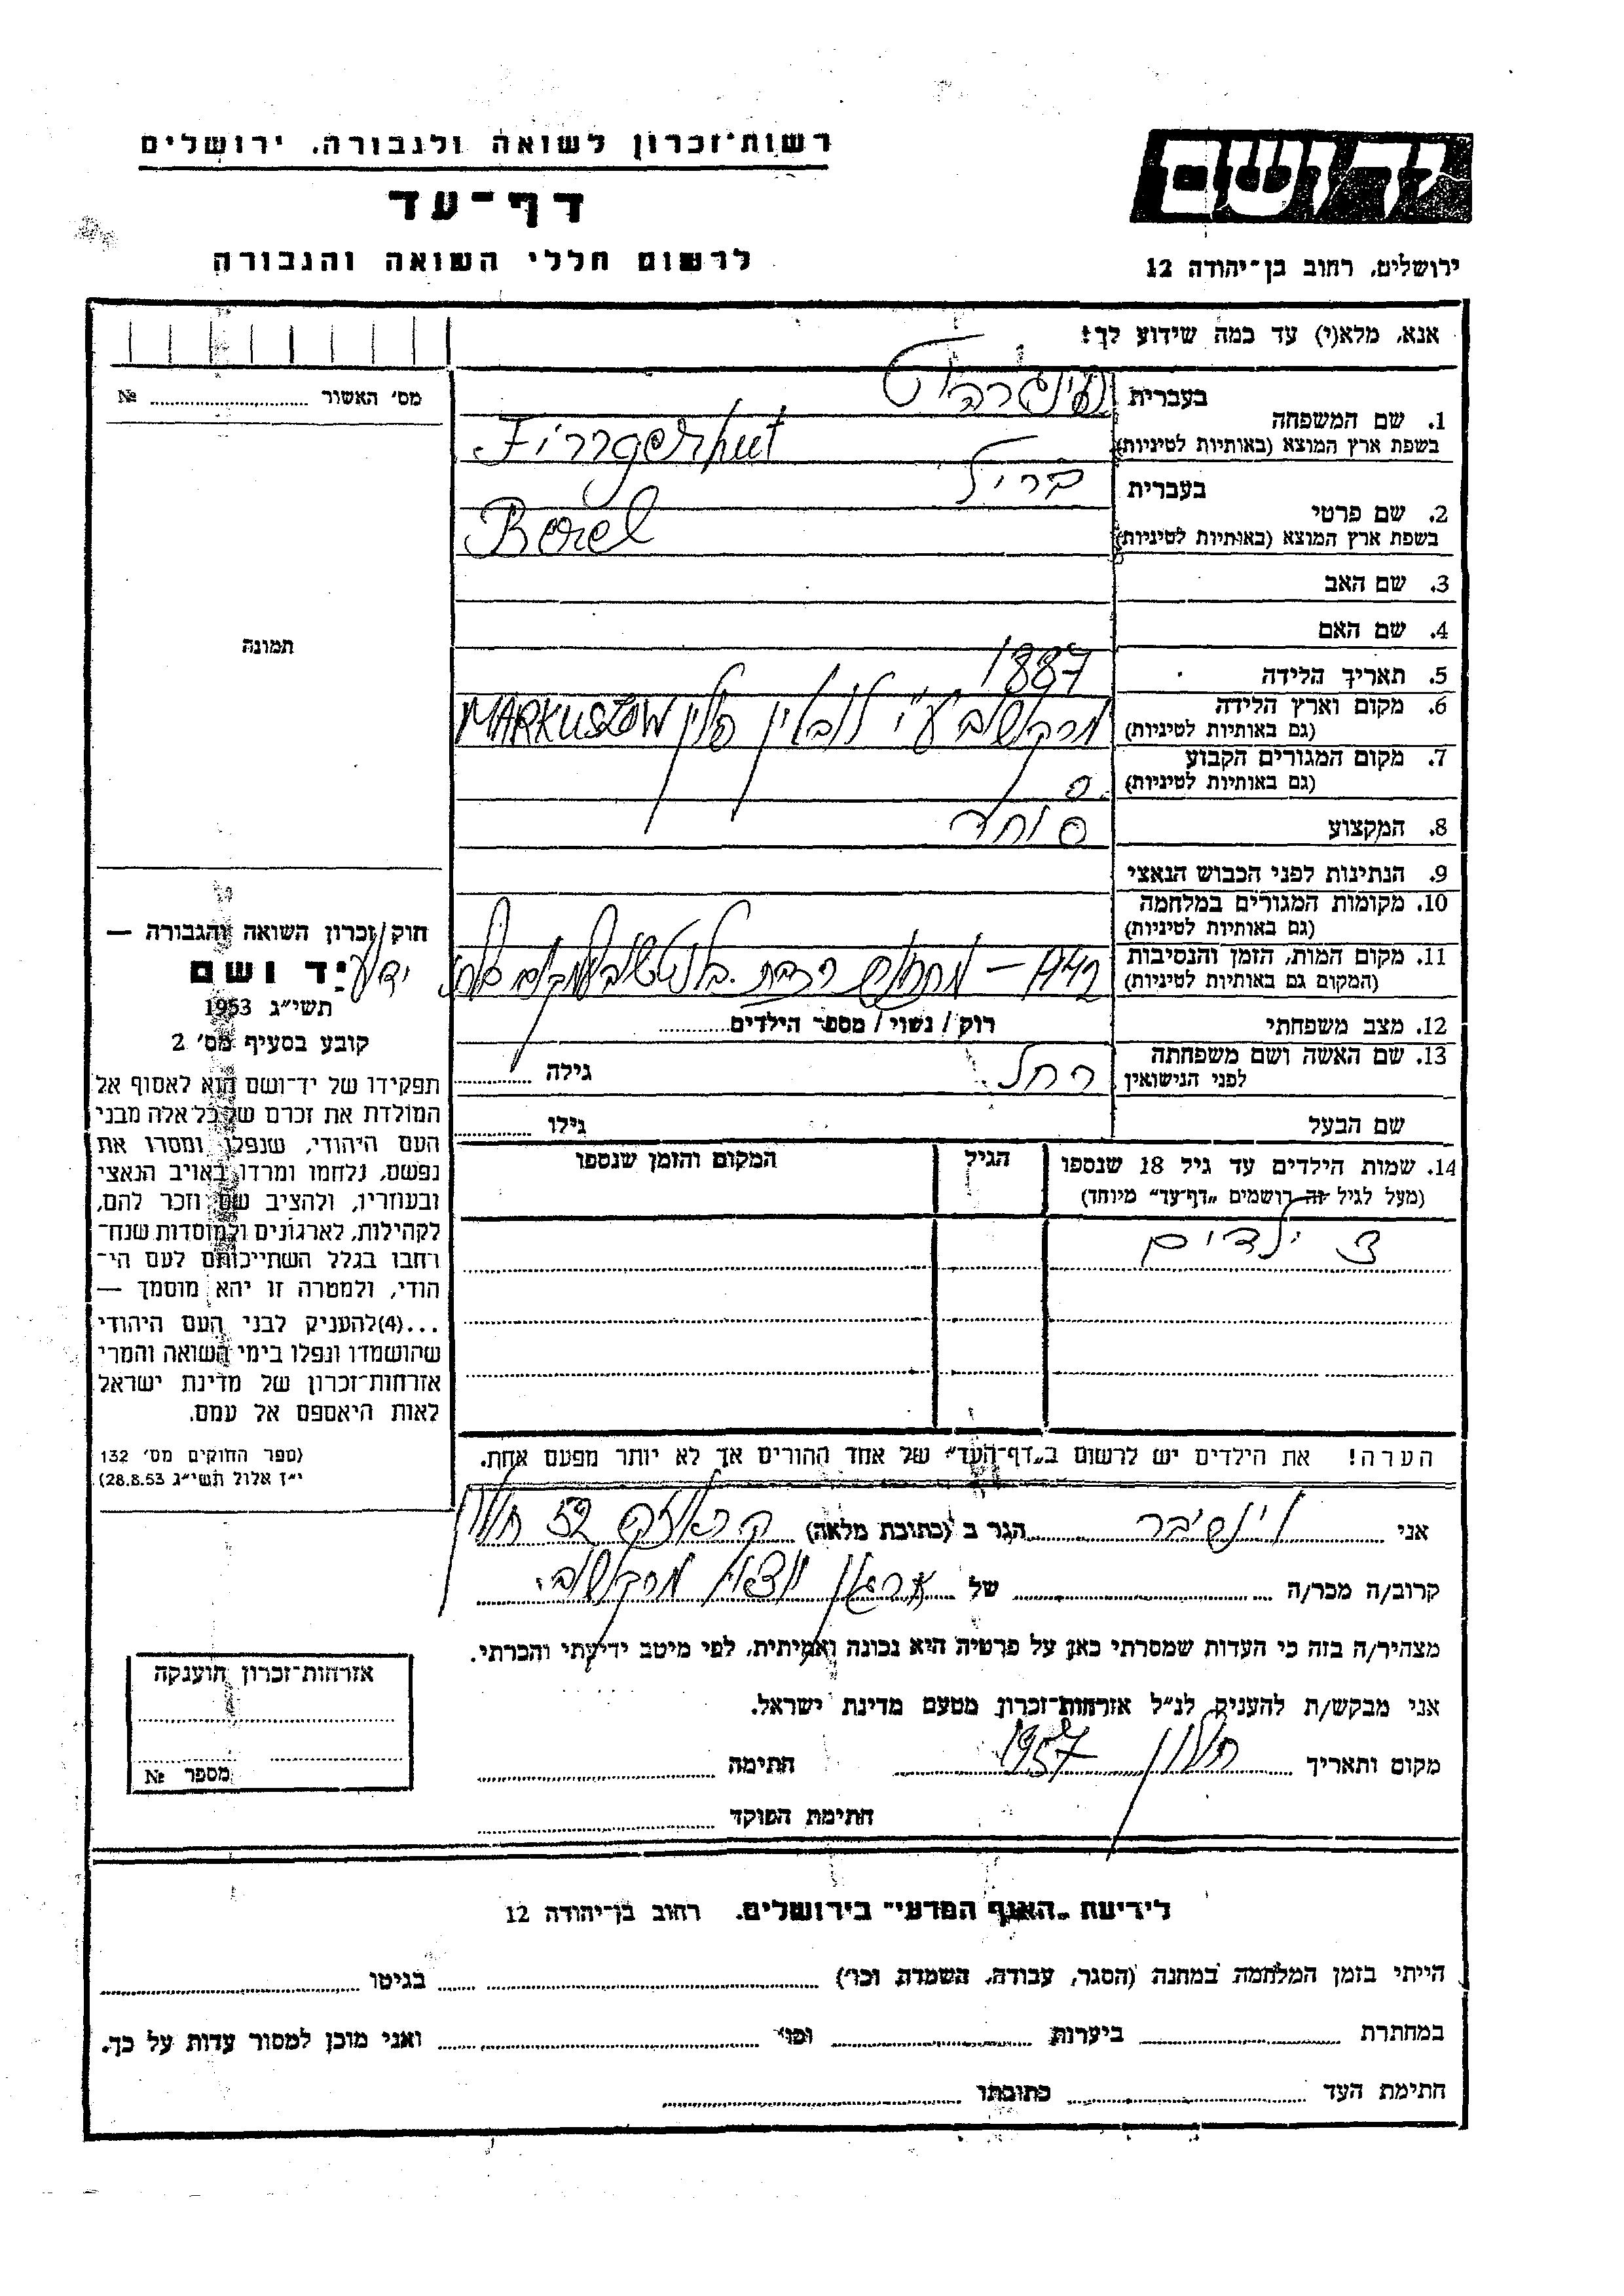 רשות־זכרון לשואה ולגבורה, ירושלים
דף־עד
לרשום חללי השואה והגבורה
יד ושם
ירושלים, רחוב בן־יהודה 12
אנא, מלא(י) עד כמה שידוע לך!
מס׳ האשור № 
1. שם המשפחה
בעברית פינגרהוט
בשפת ארץ המוצא (באותיות לטיניות) Fingerhut
2. שם פרטי
בעברית בריל
בשפת ארץ המוצא (באותיות לטיניות) Berel
3. שם האב
4. שם האם
5. תאריך הלידה 1887
6. מקום וארץ הלידה
(גם באותיות לטיניות) מרקשוב ע״י לובלין פולין MARKUSZOW
7. מקום המגורים הקבוע
(גם באותיות לטיניות)
8. המקצוע סוחר
9. הנתינות לפני הכבוש הנאצי
10. מקומות המגורים במלחמה
(גם באותיות לטיניות)
11. מקום המות, הזמן והנסיבות
(המקום גם באותיות לטיניות) 1942 – ידוע
12. מצב משפחתי רוק / נשוי / מספר הילדים
13. שם האשה ושם משפחתה
לפני הנישואין רחל גילה
שם הבעל גילו
14. שמות הילדים עד גיל 18 שנספו
(מעל לגיל זה רושמים „דף־עד״ מיוחד)
הגיל
המקום והזמן שנספו
3 ילדים
הערה! את הילדים יש לרשום ב„דף־העד״ של אחד ההורים אך לא יותר מפעם אחת.
תמונה
חוק זכרון השואה והגבורה —
יד ושם
תשי״ג 1953
קובע בסעיף מס׳ 2
תפקידו של יד־ושם הוא לאסוף אל
המולדת את זכרם של כל אלה מבני
העם היהודי, שנפלו ומסרו את
נפשם, נלחמו ומרדו באויב הנאצי
ובעוזריו, ולהציב שם וזכר להם,
לקהילות, לארגונים ולמוסדות שנח־
רחבו בגלל השתייכותם לעם הי־
הודי, ולמטרה זו יהא מוסמך —
...(4)להעניק לבני העם היהודי
שהושמדו ונפלו בימי השואה והמרי
אזרחות־זכרון של מדינת ישראל
לאות היאספם אל עמם.
(ספר החוקים מס׳ 132
י״ז אלול תשי״ג 28.8.53)
אני וינשיבר הגר ב (כתובת מלאה) 52 חולון
קרוב/ה מכר/ה של ארגון יוצאי מרקשוב
מצהיר/ה בזה כי העדות שמסרתי כאן על פרטיה היא נכונה ואמיתית, לפי מיטב ידיעתי והכרתי.
אני מבקש/ת להעניק לנ״ל אזרחות־זכרון מטעם מדינת ישראל.
מקום ותאריך חולון 1957 חתימה
חתימת הפוקד
אזרחות־זכרון הוענקה
מספר №
לידיעת „האגף המדעי״ בירושלים, רחוב בן־יהודה 12
הייתי בזמן המלחמה במחנה (הסגר, עבודה, השמדה וכו׳) בגיטו
במחתרת ביערות וכו׳ ואני מוכן למסור עדות על כך.
חתימת העד כתובתו